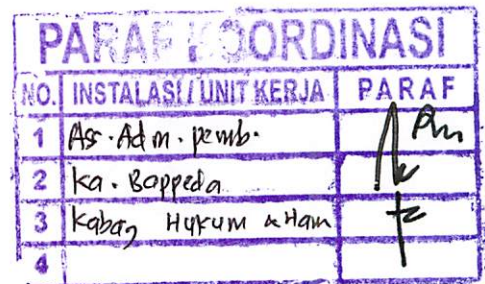 PARAF KOORDINASI
NO. INSTALASI / UNIT KERJA PARAF
1 Ass. Adm. pemb.
2 Ka. Bappeda
3 Kabag Hukum & Ham
4